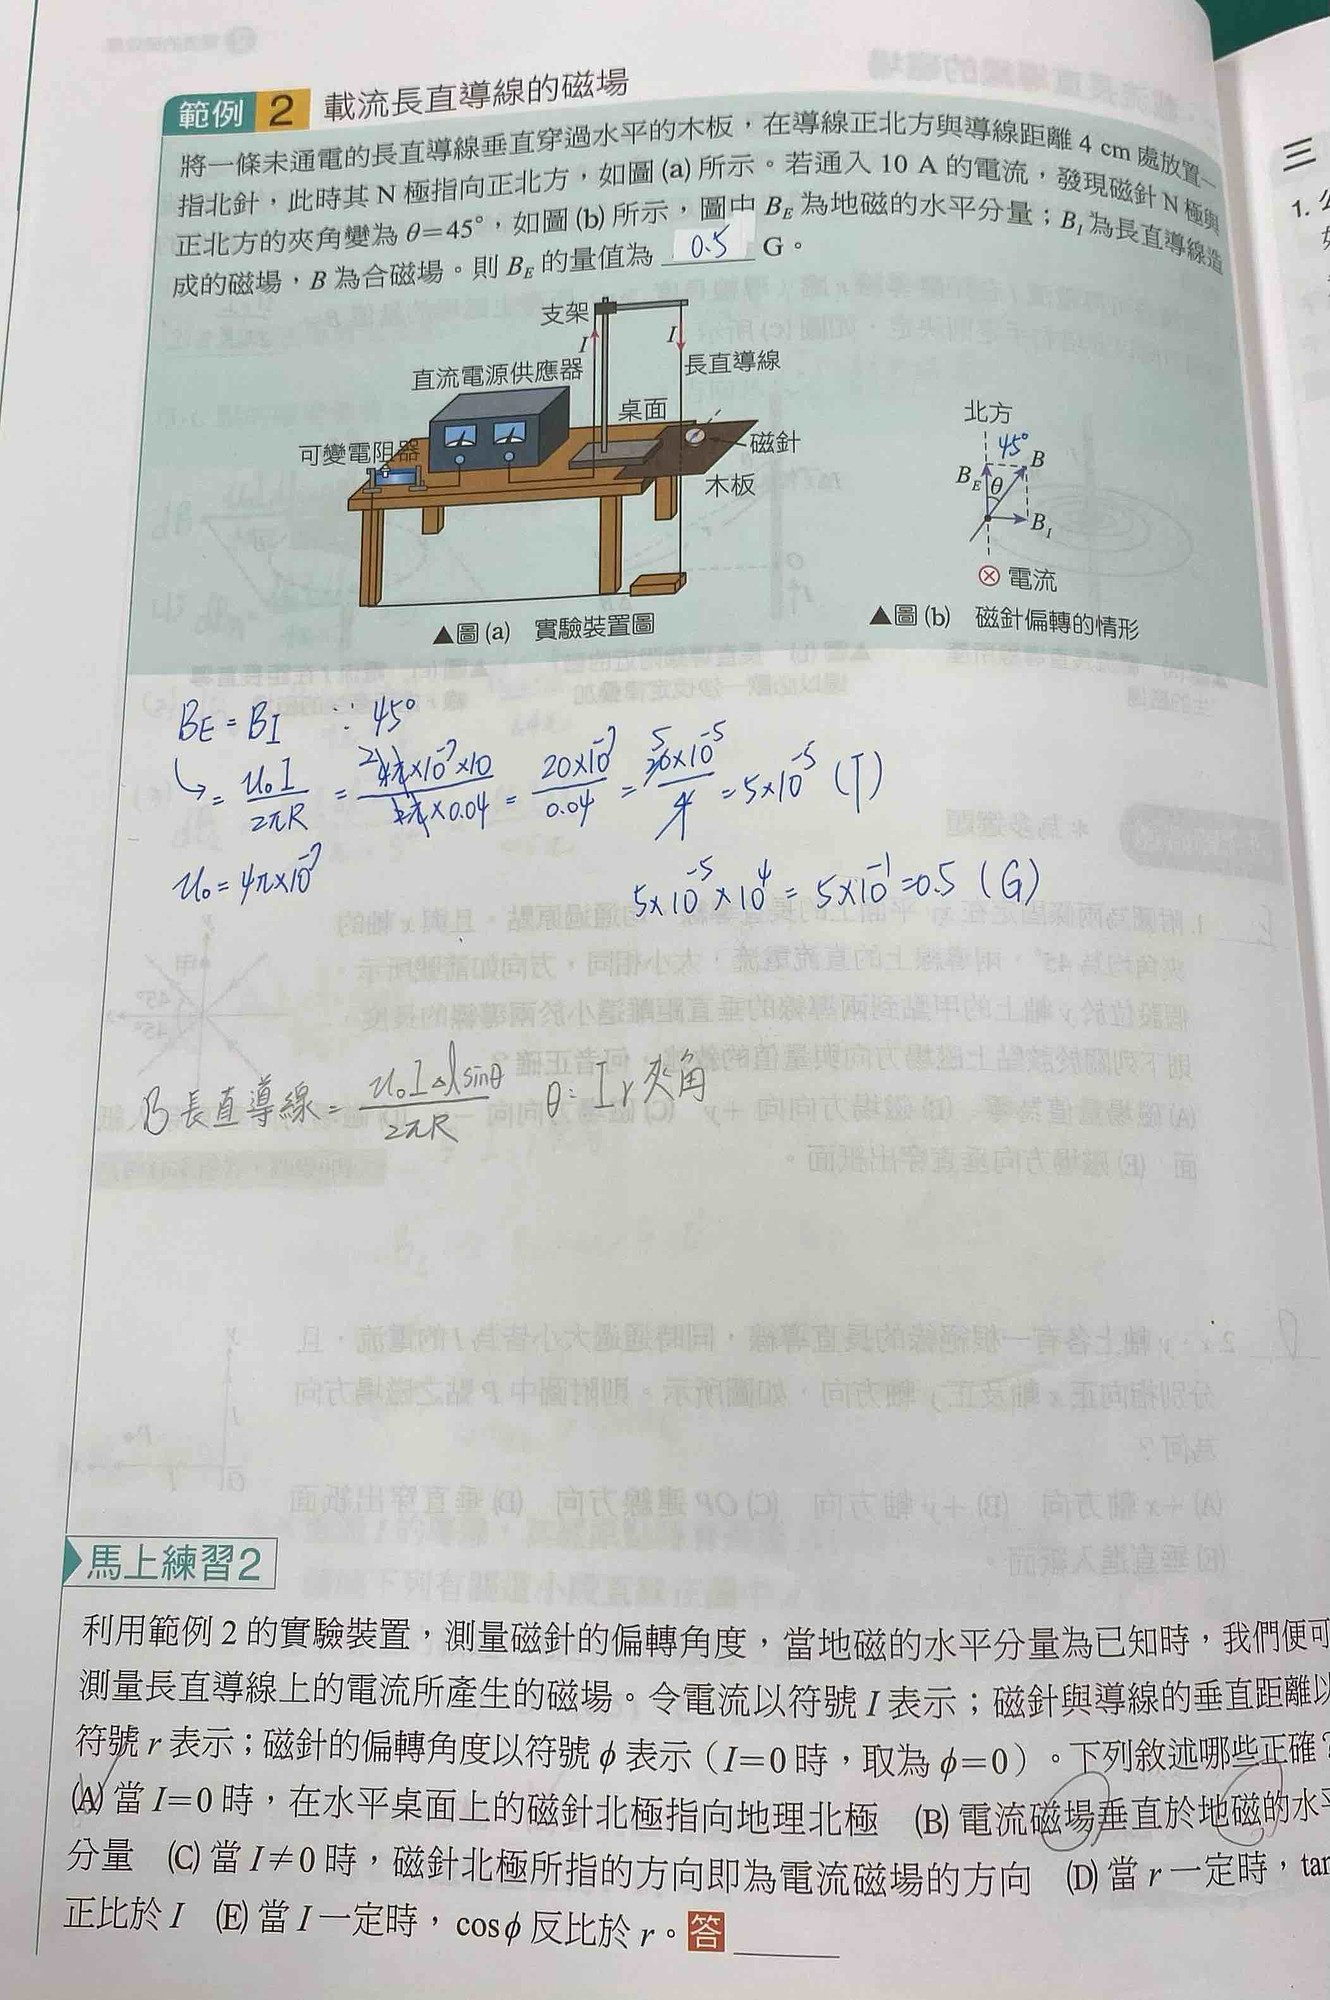 範例 2 載流長直導線的磁場
將一條未通電的長直導線垂直穿過水平的木板，在導線正北方與導線距離 4 cm 處放置一
指北針，此時其 N 極指向正北方，如圖 (a) 所示。若通入 10 A 的電流，發現磁針 N 極與
正北方的夾角變為 θ=45°，如圖 (b) 所示，圖中 B_E 為地磁的水平分量；B_I 為長直導線造
成的磁場，B 為合磁場。則 B_E 的量值為 0.5 G。
支架
I
I
直流電源供應器
長直導線
桌面
可變電阻器
磁針
木板
北方
45°
B_E
θ
B
B_I
⊗ 電流
▲圖 (a) 實驗裝置圖
▲圖 (b) 磁針偏轉的情形
B_E = B_I ∵ 45°
↳ = u₀I/2πR = 2 4π×10⁻⁷×10/2π×0.04 = 20×10⁻⁷/0.04 = 5 20×10⁻⁵/4 = 5×10⁻⁵ (T)
u₀ = 4π×10⁻⁷
5×10⁻⁵×10⁴ = 5×10⁻¹ = 0.5 (G)
B 長直導線 = u₀IΔlsinθ/2πR θ: I r 夾角
馬上練習2
利用範例 2 的實驗裝置，測量磁針的偏轉角度，當地磁的水平分量為已知時，我們便可
測量長直導線上的電流所產生的磁場。令電流以符號 I 表示；磁針與導線的垂直距離以
符號 r 表示；磁針的偏轉角度以符號 ϕ 表示（I=0 時，取為 ϕ=0）。下列敘述哪些正確？
(A) 當 I=0 時，在水平桌面上的磁針北極指向地理北極 (B) 電流磁場垂直於地磁的水平
分量 (C) 當 I≠0 時，磁針北極所指的方向即為電流磁場的方向 (D) 當 r 一定時，tan
正比於 I (E) 當 I 一定時，cosϕ 反比於 r。答
三
1.